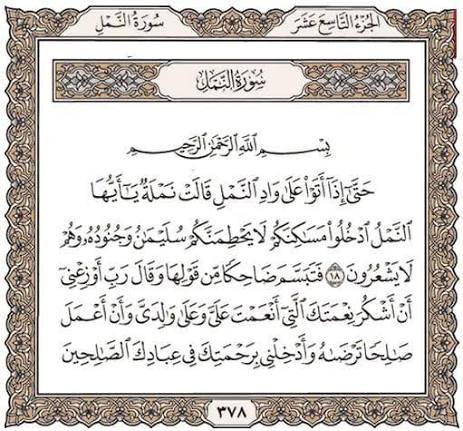 الجزء التاسع عشر
سورة النمل
سورة النمل
بسم الله الرحمن الرحيم
حَتَّىٰٓ إِذَآ أَتَوْا۟ عَلَىٰ وَادِ ٱلنَّمْلِ قَالَتْ نَمْلَةٌ يَـٰٓأَيُّهَا
ٱلنَّمْلُ ٱدْخُلُوا۟ مَسَـٰكِنَكُمْ لَا يَحْطِمَنَّكُمْ سُلَيْمَـٰنُ وَجُنُودُهُۥ وَهُمْ
لَا يَشْعُرُونَ ١٨ فَتَبَسَّمَ ضَاحِكًا مِّن قَوْلِهَا وَقَالَ رَبِّ أَوْزِعْنِىٓ
أَنْ أَشْكُرَ نِعْمَتَكَ ٱلَّتِىٓ أَنْعَمْتَ عَلَىَّ وَعَلَىٰ وَٰلِدَىَّ وَأَنْ أَعْمَلَ
صَـٰلِحًا تَرْضَىٰهُ وَأَدْخِلْنِى بِرَحْمَتِكَ فِى عِبَادِكَ ٱلصَّـٰلِحِينَ
٣٧٨